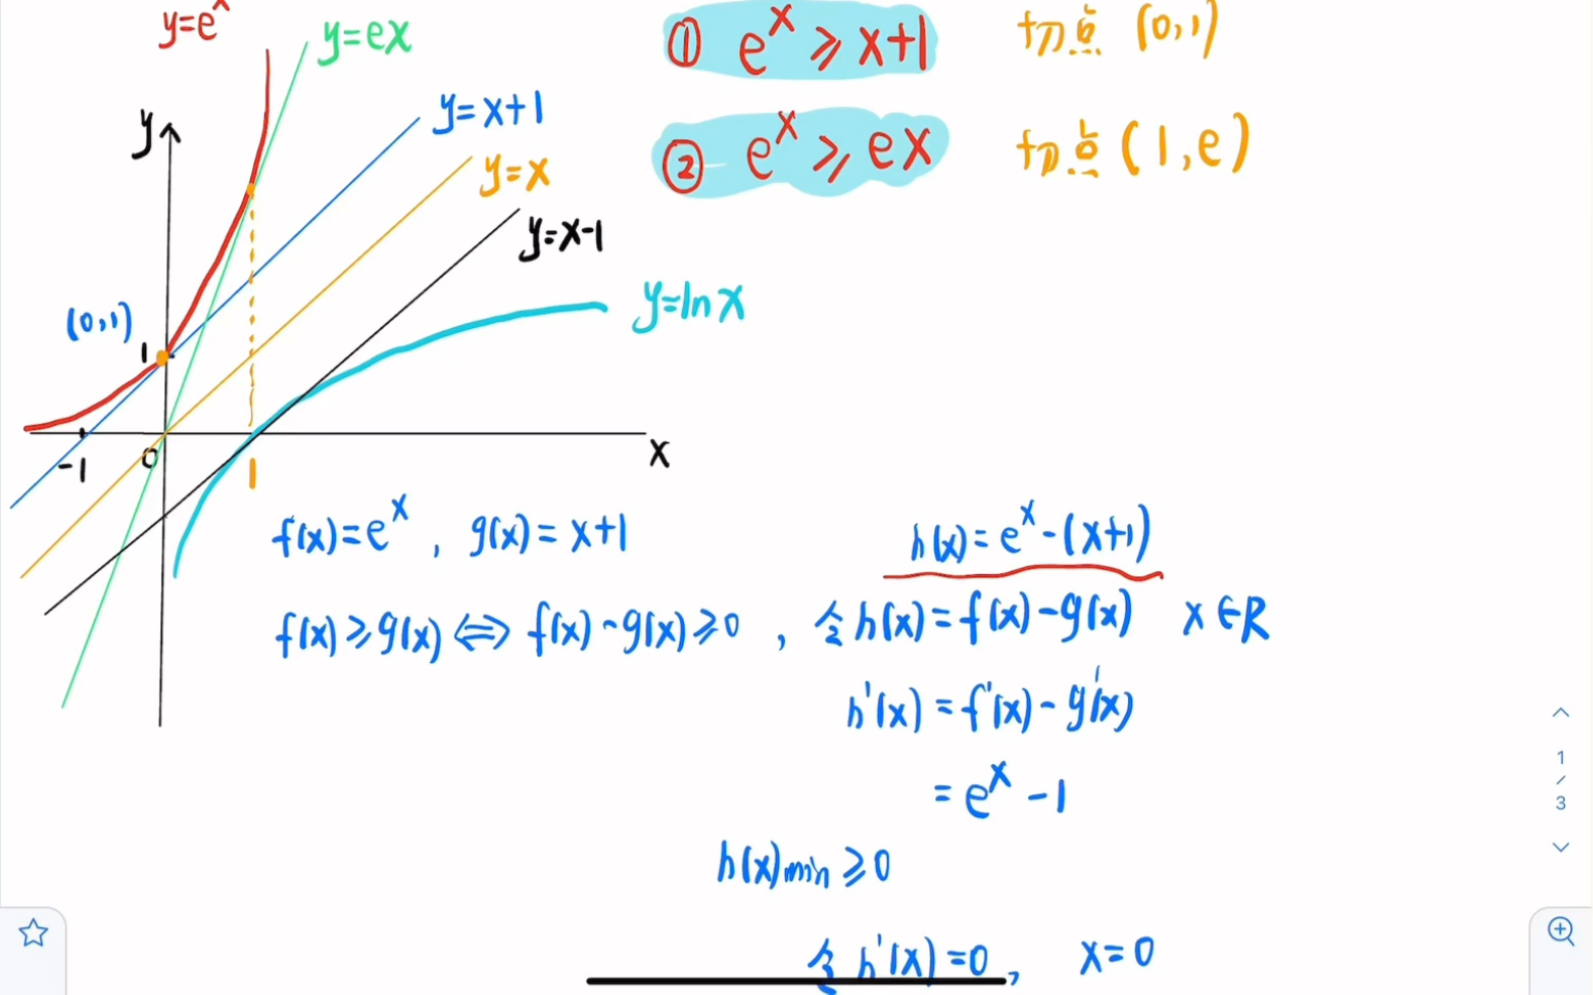 y=eˣ
y=ex
① eˣ ≥ x+1
切点 (0,1)
y=x+1
y
y=x
② eˣ ≥ ex
切点 (1,e)
y=x-1
y=lnx
(0,1)
1
-1
0
1
x
f(x)=eˣ , g(x)=x+1
h(x)=eˣ-(x+1)
f(x)≥g(x)⇔f(x)-g(x)≥0 , 令h(x)=f(x)-g(x) x∈R
h'(x)=f'(x)-g'(x)
=eˣ-1
h(x)min≥0
令h'(x)=0, x=0
1
/
3